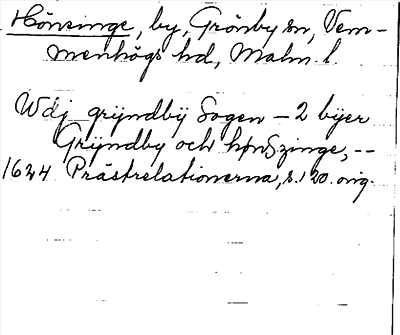 Hönsinge, by, Grönby sn, Vem-
menhögs hd, Malm. l.
Wdj grÿndbÿ Sogen - 2 bÿer
Grÿndby och hønSzinge, --
1624 Prästrelationerna, s. 120. orig.